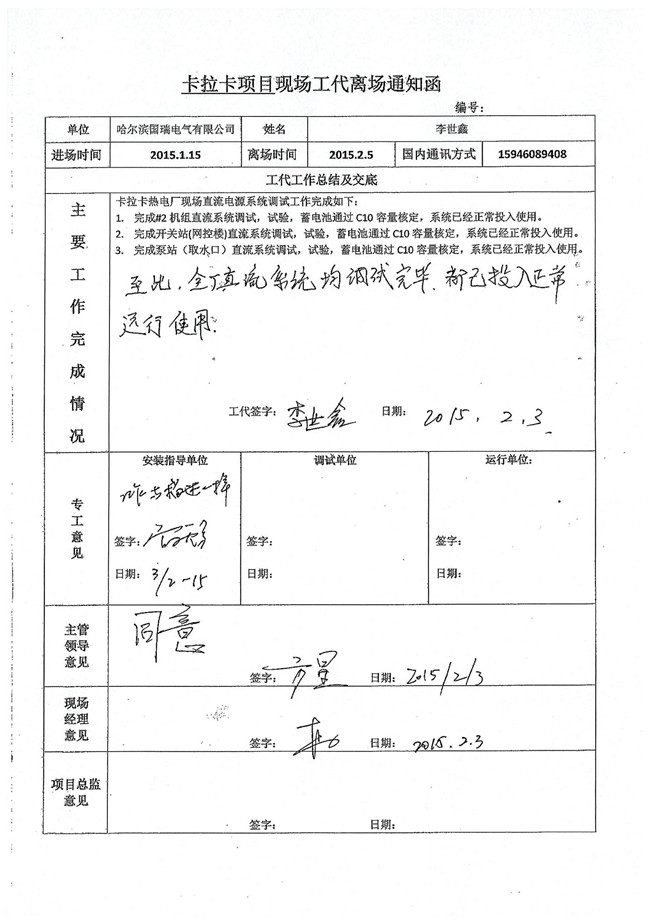 卡拉卡项目现场工代离场通知函
编号:
单位 哈尔滨国瑞电气有限公司 姓名 李世鑫
进场时间 2015.1.15 离场时间 2015.2.5 国内通讯方式 15946089408
工代工作总结及交底
主要工作完成情况
卡拉卡热电厂现场直流电源系统调试工作完成如下:
1. 完成#2 机组直流系统调试，试验，蓄电池通过 C10 容量核定，系统已经正常投入使用。
2. 完成开关站(网控楼)直流系统调试，试验，蓄电池通过 C10 容量核定，系统已经正常投入使用。
3. 完成泵站（取水口）直流系统调试，试验，蓄电池通过 C10 容量核定，系统已经正常投入使用。
至此，全厂直流系统均调试完毕，都已投入正常
运行使用.
工代签字: 李世鑫 日期: 2015.2.3
专工意见
安装指导单位 调试单位 运行单位:
签字: 签字: 签字:
日期: 3/2-15 日期: 日期:
主管领导意见 同意
签字: 日期: 2015/2/3
现场经理意见
签字: 日期: 2015.2.3
项目总监意见
签字: 日期: